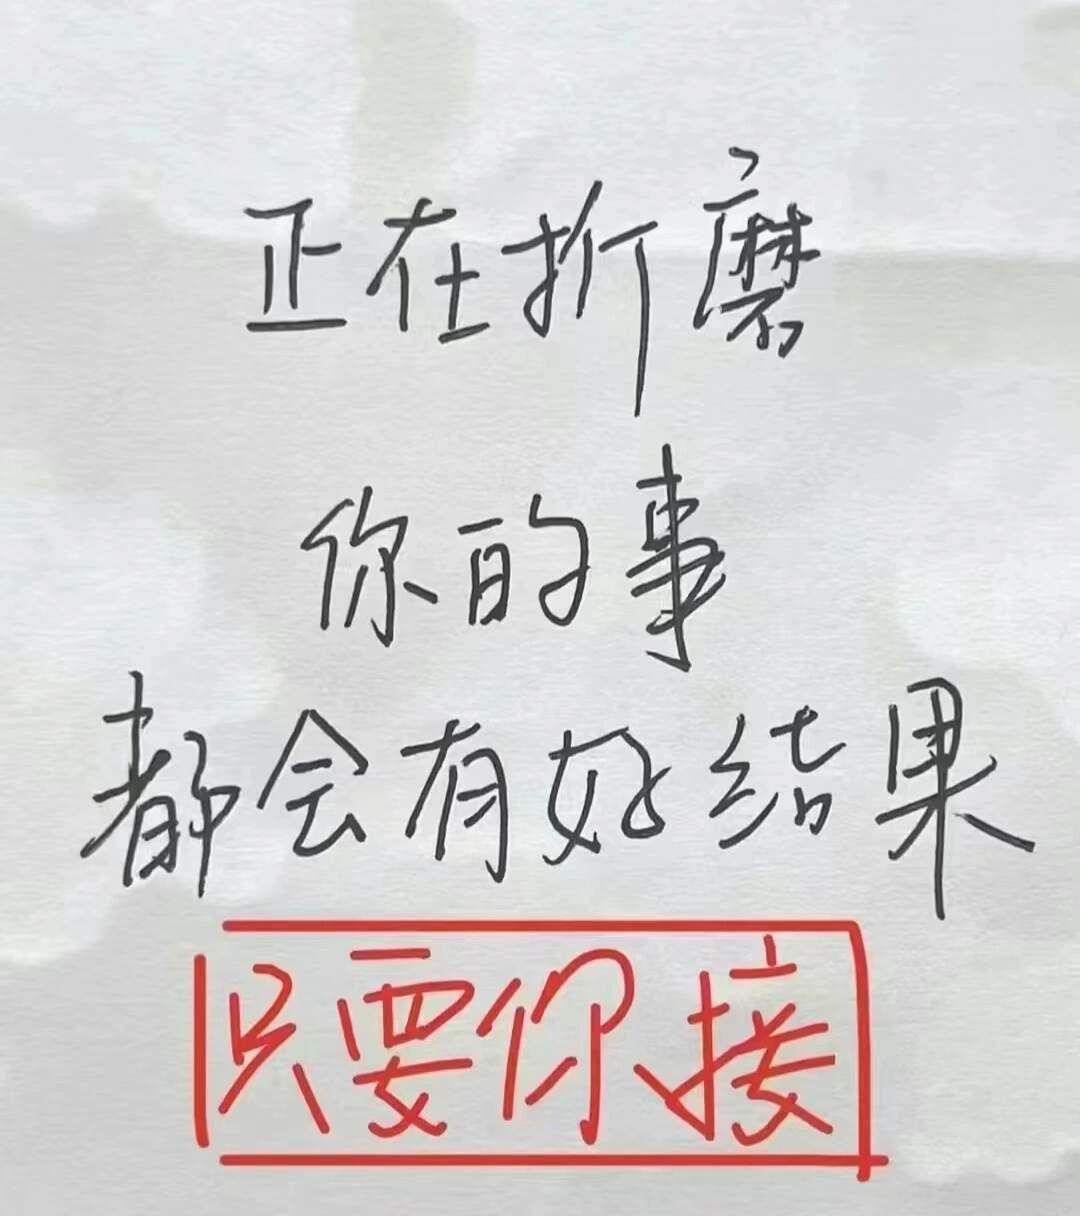 正在折磨
你的事
都会有好结果
只要你接